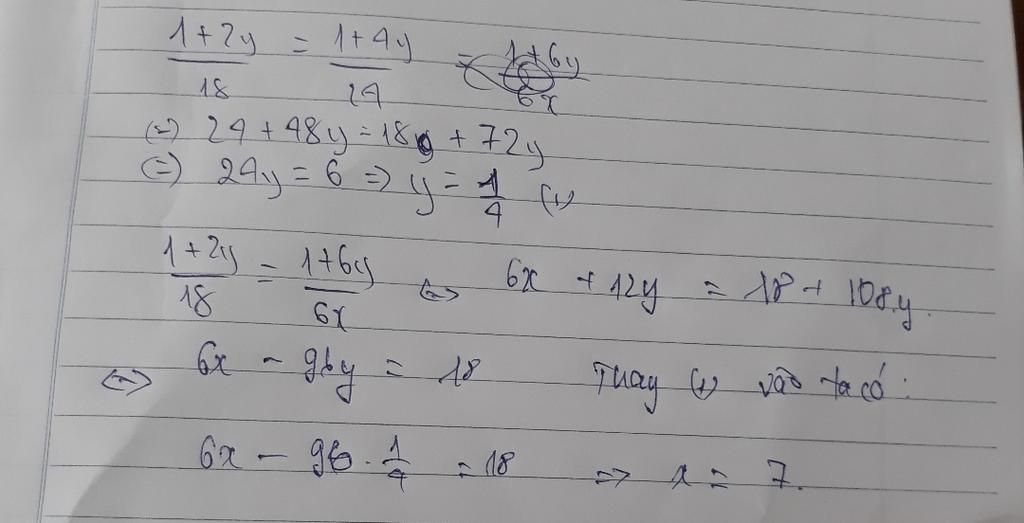 1+2y/18 = 1+4y/24 = 1+6y/6x
(=) 24 + 48y = 18 + 72y
(=) 24y = 6 => y = 1/4 (1)
1+2y/18 = 1+6y/6x <=> 6x + 12y = 18 + 108y.
<=> 6x - 96y = 18 Thay (1) vào ta có:
6x - 96 . 1/4 = 18 => x = 7.